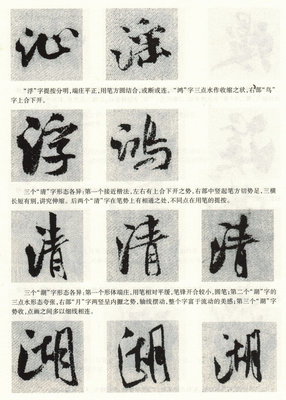 沁 淫
“浮”字提按分明，端庄平正，用笔方圆结合，或断或连。“鸿”字三点水作收缩之状，右部“鸟”
字上合下开。
浮 鸿
三个“清”字形态各异：第一个接近楷法，左右有上合下开之势，右部中竖起笔方切势足，三横
长短有别，讲究伸缩。后两个“清”字在笔势上有相通之处，不同点在用笔的提按。
清 清 清
三个“湖”字形态各异：第一个形体端庄，用笔相对平缓，笔锋开合较小，圆笔；第二个“湖”字的
三点水形态夸张，右部“月”字两竖呈内擫之势，轴线摆动，整个字富于流动的美感；第三个“湖”字
势收，点画之间多以细线相连。
湖 湖 湖